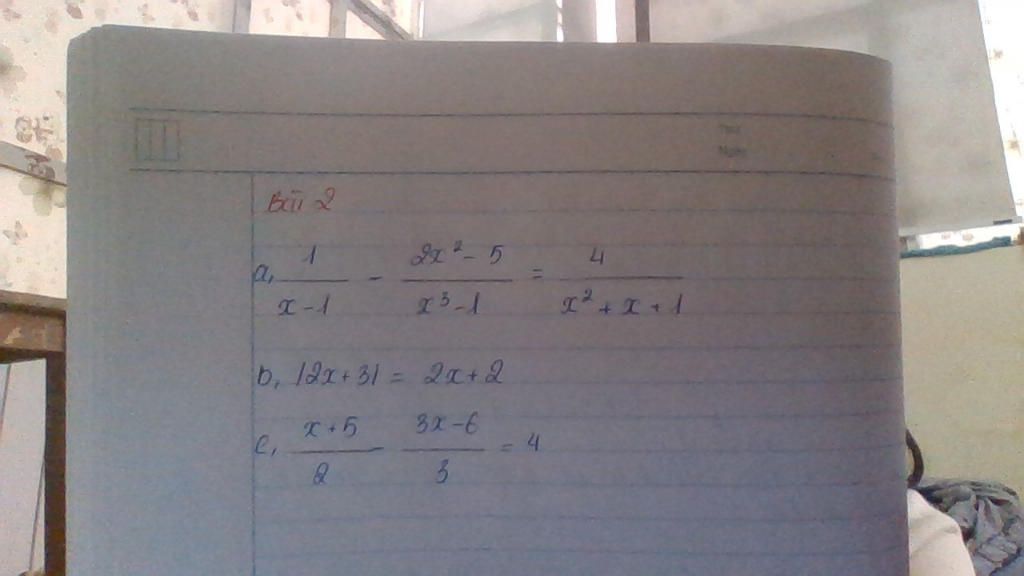 Bài 2
a, 1/(x-1) - (2x²-5)/(x³-1) = 4/(x²+x+1)
b, |2x+3| = 2x+2
c, (x+5)/2 - (3x-6)/3 = 4